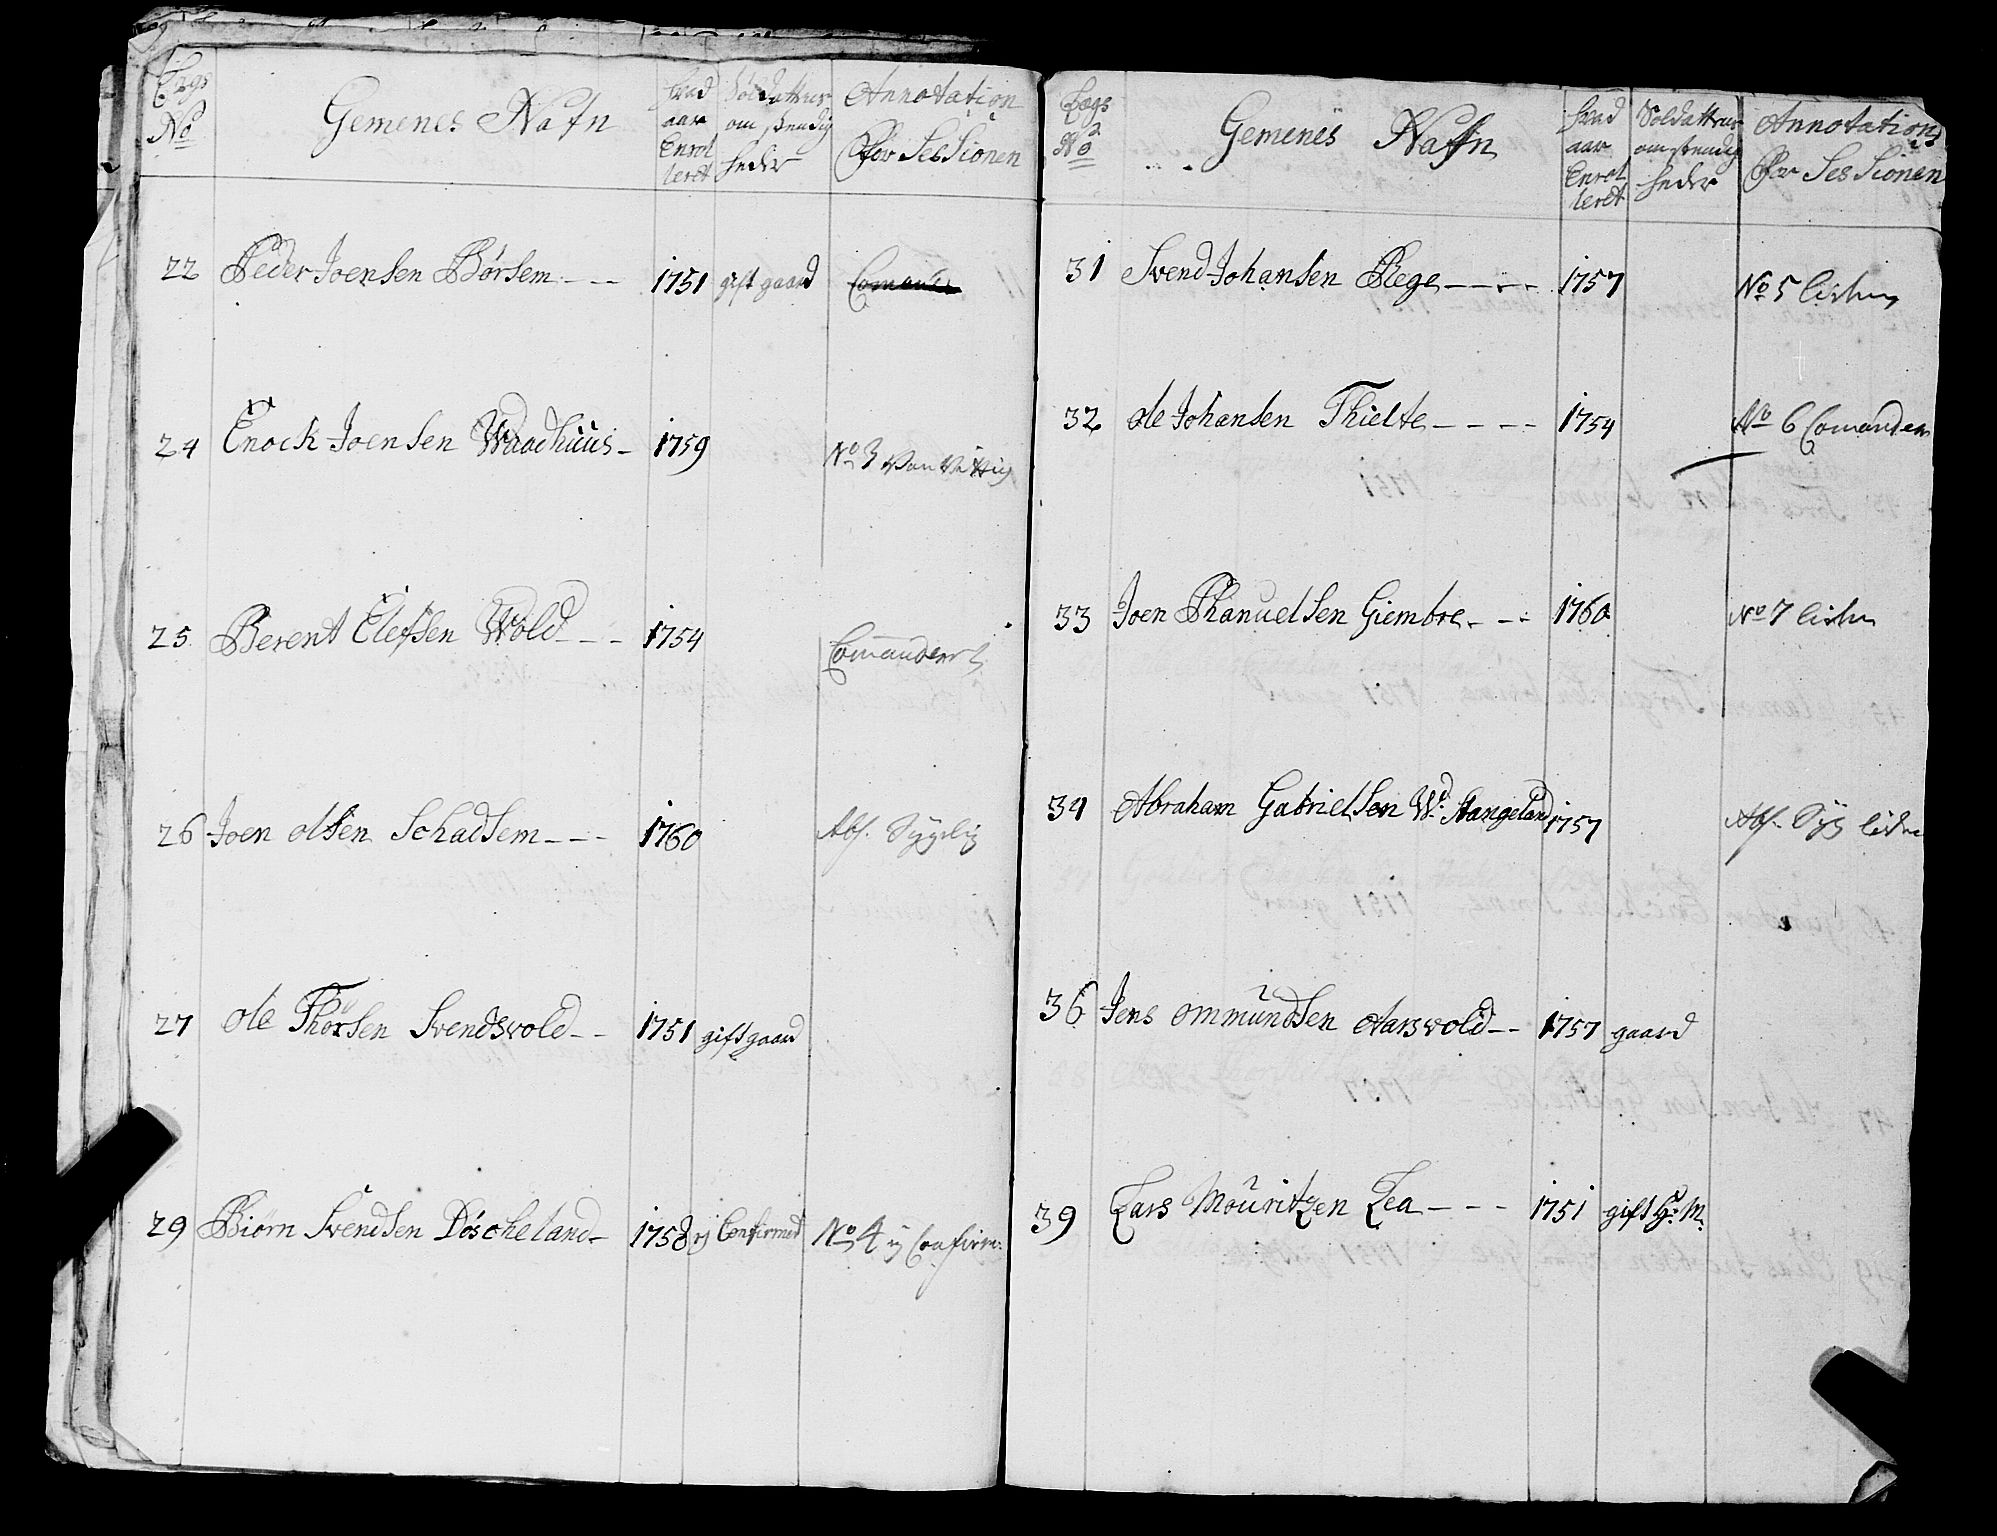 Lægs No Gemenes Nafn hvad aar Enrol leret Soldatter om stendig heder Annotation For Sessionen
22 Peder Joensen Børsem 1751 gift gaard
24 Enoch Joensen Waadhuus 1759 No 3 Van Vittig
25 Berent Elefsen Wold 1754 Comandeert
26 Joen olsen Schadsem 1760 Abs. Sygelig
27 ole Thørsen Svendsvold 1751 gift gaard
29 Biørn Svendsen Døscheland 1758 ej Confirmert No 4 ej Confirm:
Lægs No Gemenes Nafn hvad aar Enrol leret Soldatter om stendig heder Annotation For Sessionen
31 Svend Johansen Rege 1757 No 5
32 ole Johansen Thielte 1754 No 6 Comanderr
33 Joen Phanuelsen Giembre 1760 No 7
34 Abraham Gabrielsen Wd. Stangeland 1757 Abs. Syg
36 Jens ommundsen Aarsvold 1757 gaard
39 Lars Mouritzen Lea 1751 gift H: M: